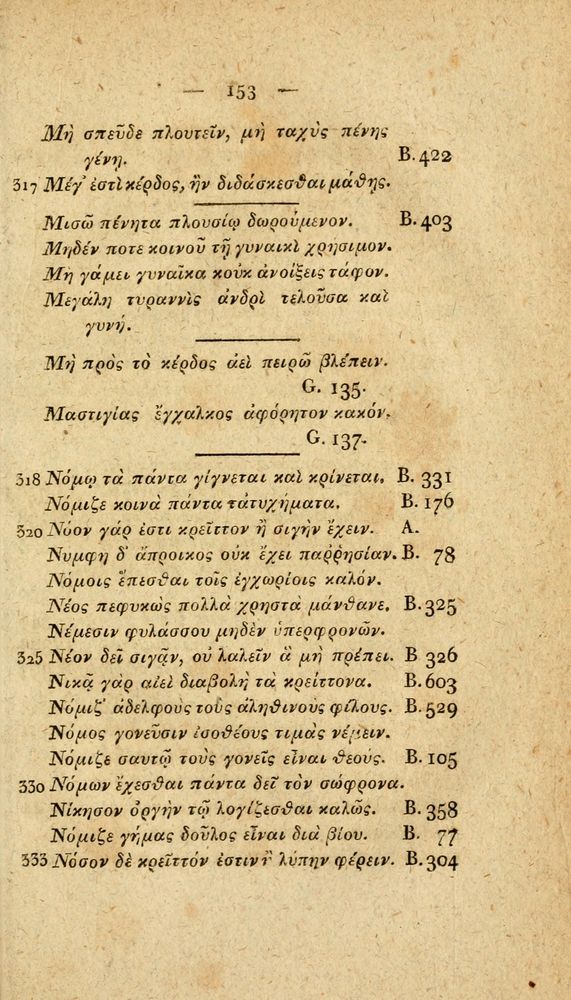 — 153 —
Μὴ σπεῦδε πλουτεῖν, μὴ ταχὺς πένης
γένῃ. B. 422
317 Μέγ' ἐστὶ κέρδος, ἢν διδάσκεσθαι μάθῃς.
Μισῶ πένητα πλουσίῳ δωρούμενον. B. 403
Μηδέν ποτε κοινοῦ τῇ γυναικὶ χρήσιμον.
Μὴ γάμει γυναῖκα κοὐκ ἀνοίξεις τάφον.
Μεγάλη τυραννὶς ἀνδρὶ τελοῦσα καὶ
γυνή.
Μὴ πρὸς τὸ κέρδος ἀεὶ πειρῶ βλέπειν.
G. 135.
Μαστιγίας ἔγχαλκος ἀφόρητον κακόν.
G. 137.
318 Νόμῳ τὰ πάντα γίγνεται καὶ κρίνεται. B. 331
Νόμιζε κοινὰ πάντα τἀτυχήματα. B. 176
320 Νύον γάρ ἐστι κρεῖττον ἢ σιγὴν ἔχειν. A.
Νυμφη δ' ἄπροικος οὐκ ἔχει παῤῥησίαν. B. 78
Νόμοις ἕπεσθαι τοῖς ἐγχωρίοις καλόν.
Νέος πεφυκὼς πολλὰ χρηστὰ μάνθανε. B. 325
Νέμεσιν φυλάσσου μηδὲν ὑπερφρονῶν.
325 Νέον δεῖ σιγᾷν, οὐ λαλεῖν ἃ μὴ πρέπει. B 326
Νικᾷ γὰρ αἰεὶ διαβολὴ τὰ κρείττονα. B. 603
Νόμιζ' ἀδελφοὺς τοὺς ἀληθινοὺς φίλους. B. 529
Νόμος γονεῦσιν ἰσοθέους τιμὰς νέμειν.
Νόμιζε σαυτῷ τοὺς γονεῖς εἶναι θεούς. B. 105
330 Νόμων ἔχεσθαι πάντα δεῖ τὸν σώφρονα.
Νίκησον ὀργὴν τῷ λογίζεσθαι καλῶς. B. 358
Νόμιζε γήμας δοῦλος εἶναι διὰ βίου. B. 77
333 Νόσον δὲ κρεῖττόν ἐστιν ἢ λύπην φέρειν. B. 304